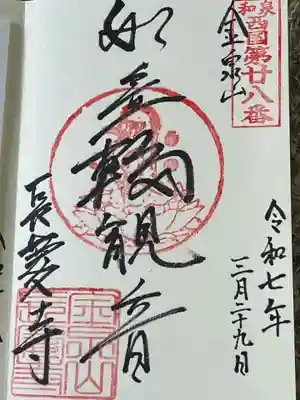 和泉
西国第廿八番
金泉山
如意輪観音
長慶寺
令和七年
三月二十九日